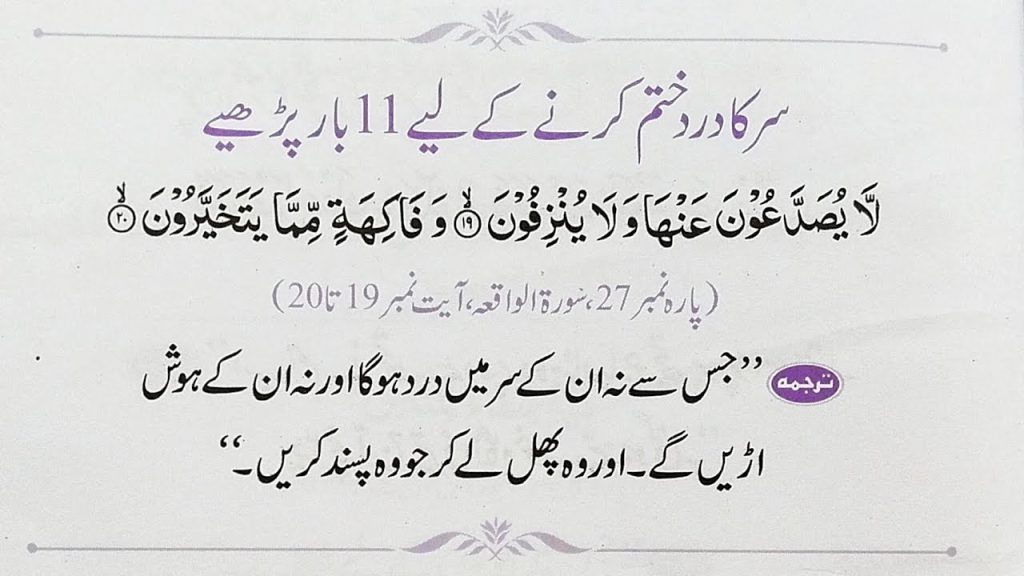 سر کا درد ختم کرنے کے لیے 11 بار پڑھیے
لَّا يُصَدَّعُوْنَ عَنْهَا وَلَا يُنْزِفُوْنَ ﴿١٩﴾ وَفَاكِهَةٍ مِّمَّا يَتَخَيَّرُوْنَ ﴿٢٠﴾
(پارہ نمبر 27، سُورۃ الواقعہ، آیت نمبر 19 تا 20)
ترجمہ ”جس سے نہ ان کے سر میں درد ہوگا اور نہ ان کے ہوش
اڑیں گے۔ اور وہ پھل لے کر جو وہ پسند کریں۔“